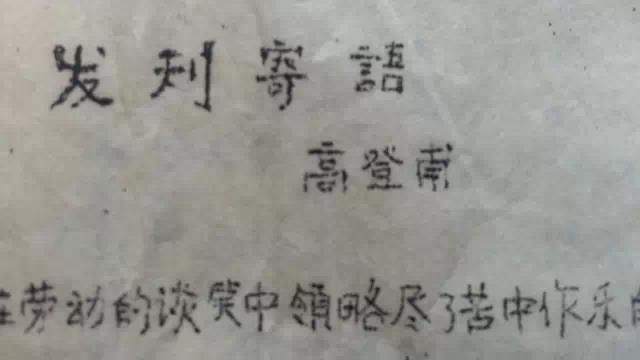 发刊寄語
高登甫
在劳动的谈笑中領略尽了苦中作乐的